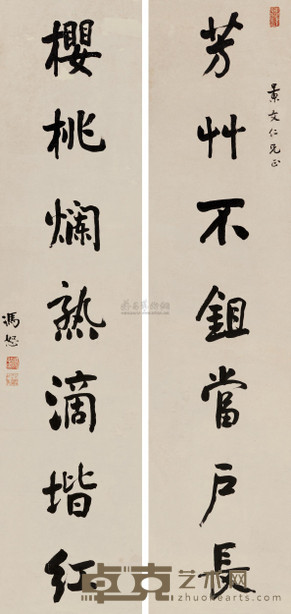 芳艸不鉏當戶長
景文仁兄正
櫻桃爛熟滴堦紅
馮恕
卓克艺术网
zhuokearts.com